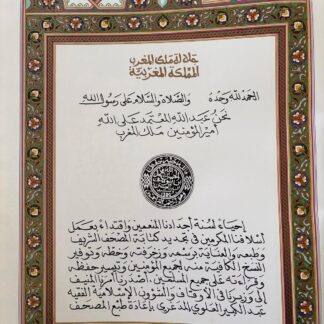 جلالة ملك المغرب
المملكة المغربية
الحمد لله وحده والصلاة والسلام على رسول الله
نحن عبد الله المعتمد على الله
أمير المؤمنين ملك المغرب
إحياء لسنة أجدادنا المنعمين واقتداء بعمل
أسلافنا المكرمين في تجديد كتابة المصحف الشريف
وطبعه والعناية برسمه وزخرفته وحطه وتوفير
النسخ الكافية منه لجميع المؤمنين وتيسير حفظه
وقراءته على جميع المسلمين. أصدرنا أمرنا المنيف
إلى وزيرنا في الأوقاف والشؤون الإسلامية الفقيه
عبد الكبير العلوي المدغري بإعادة طبع المصحف